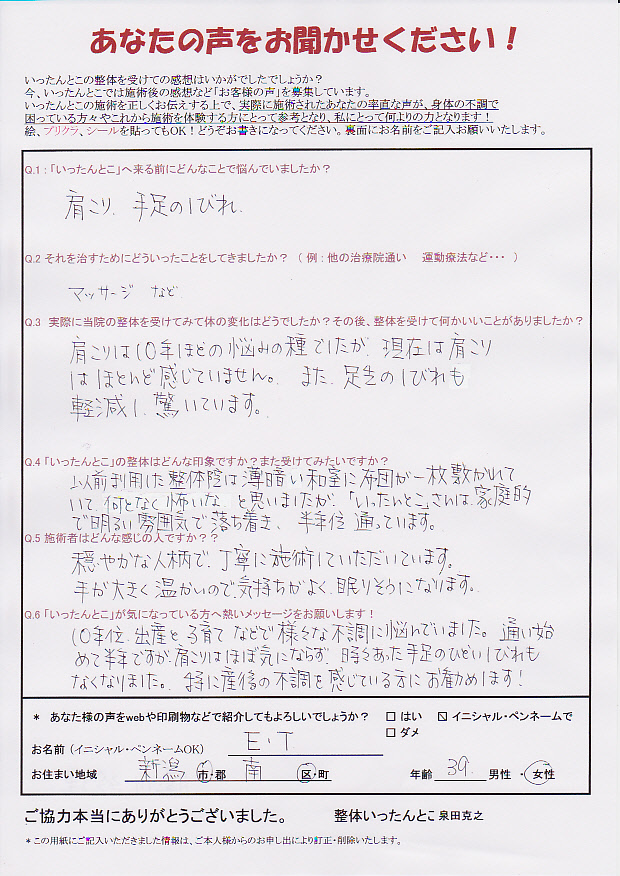 あなたの声をお聞かせください!
いったんとこの整体を受けての感想はいかがでしたでしょうか?
今、いったんとこでは施術後の感想など「お客様の声」を募集しています。
いったんとこの施術を正しくお伝えする上で、実際に施術されたあなたの率直な声が、身体の不調で
困っている方々やこれから施術を体験する方にとって参考となり、私にとって何よりの力となります!
絵、プリクラ、シールを貼ってもOK!どうぞお書きになってください。裏面にお名前をご記入お願いいたします。
Q.1:「いったんとこ」へ来る前にどんなことで悩んでいましたか?
肩こり、手足のしびれ、
Q.2 それを治すためにどういったことをしてきましたか? ( 例:他の治療院通い 運動療法など・・・ )
マッサージ など
Q.3 実際に当院の整体を受けてみて体の変化はどうでしたか?その後、整体を受けて何かいいことがありましたか?
肩こりは10年ほどの悩みの種でしたが、現在は肩こり
はほとんど感じていません。 また、足先のしびれも
軽減し、驚いています。
Q.4 「いったんとこ」の整体はどんな印象ですか?また受けてみたいですか?
以前利用した整体院は薄暗い和室に布団が一枚敷かれて
いて、何となく怖いな、と思いましたが、「いったんとこ」さんは、家庭的
で明るい雰囲気で落ち着き、半年位通っています。
Q.5 施術者はどんな感じの人ですか??
穏やかな人柄で、丁寧に施術していただいています。
手が大きく温かいので、気持ちがよく、眠りそうになります。
Q.6 「いったんとこ」が気になっている方へ熱いメッセージをお願いします!
10年位、出産と子育てなどで様々な不調に悩んでいました。通い始
めて半年ですが、肩こりはほぼ気にならず、時々あった手足のひどいしびれも
なくなりました。特に産後の不調を感じている方にお勧めます!
* あなた様の声をwebや印刷物などで紹介してもよろしいでしょうか? □ はい ☑ イニシャル・ペンネームで
□ ダメ
お名前(イニシャル・ペンネームOK) E・T
お住まい地域 新潟 市・郡 南 区・町 年齢 39 男性 ・ 女性
ご協力本当にありがとうございました。 整体いったんとこ 泉田克之
* この用紙にご記入いただきました情報は、ご本人様からのお申し出により訂正・削除いたします。